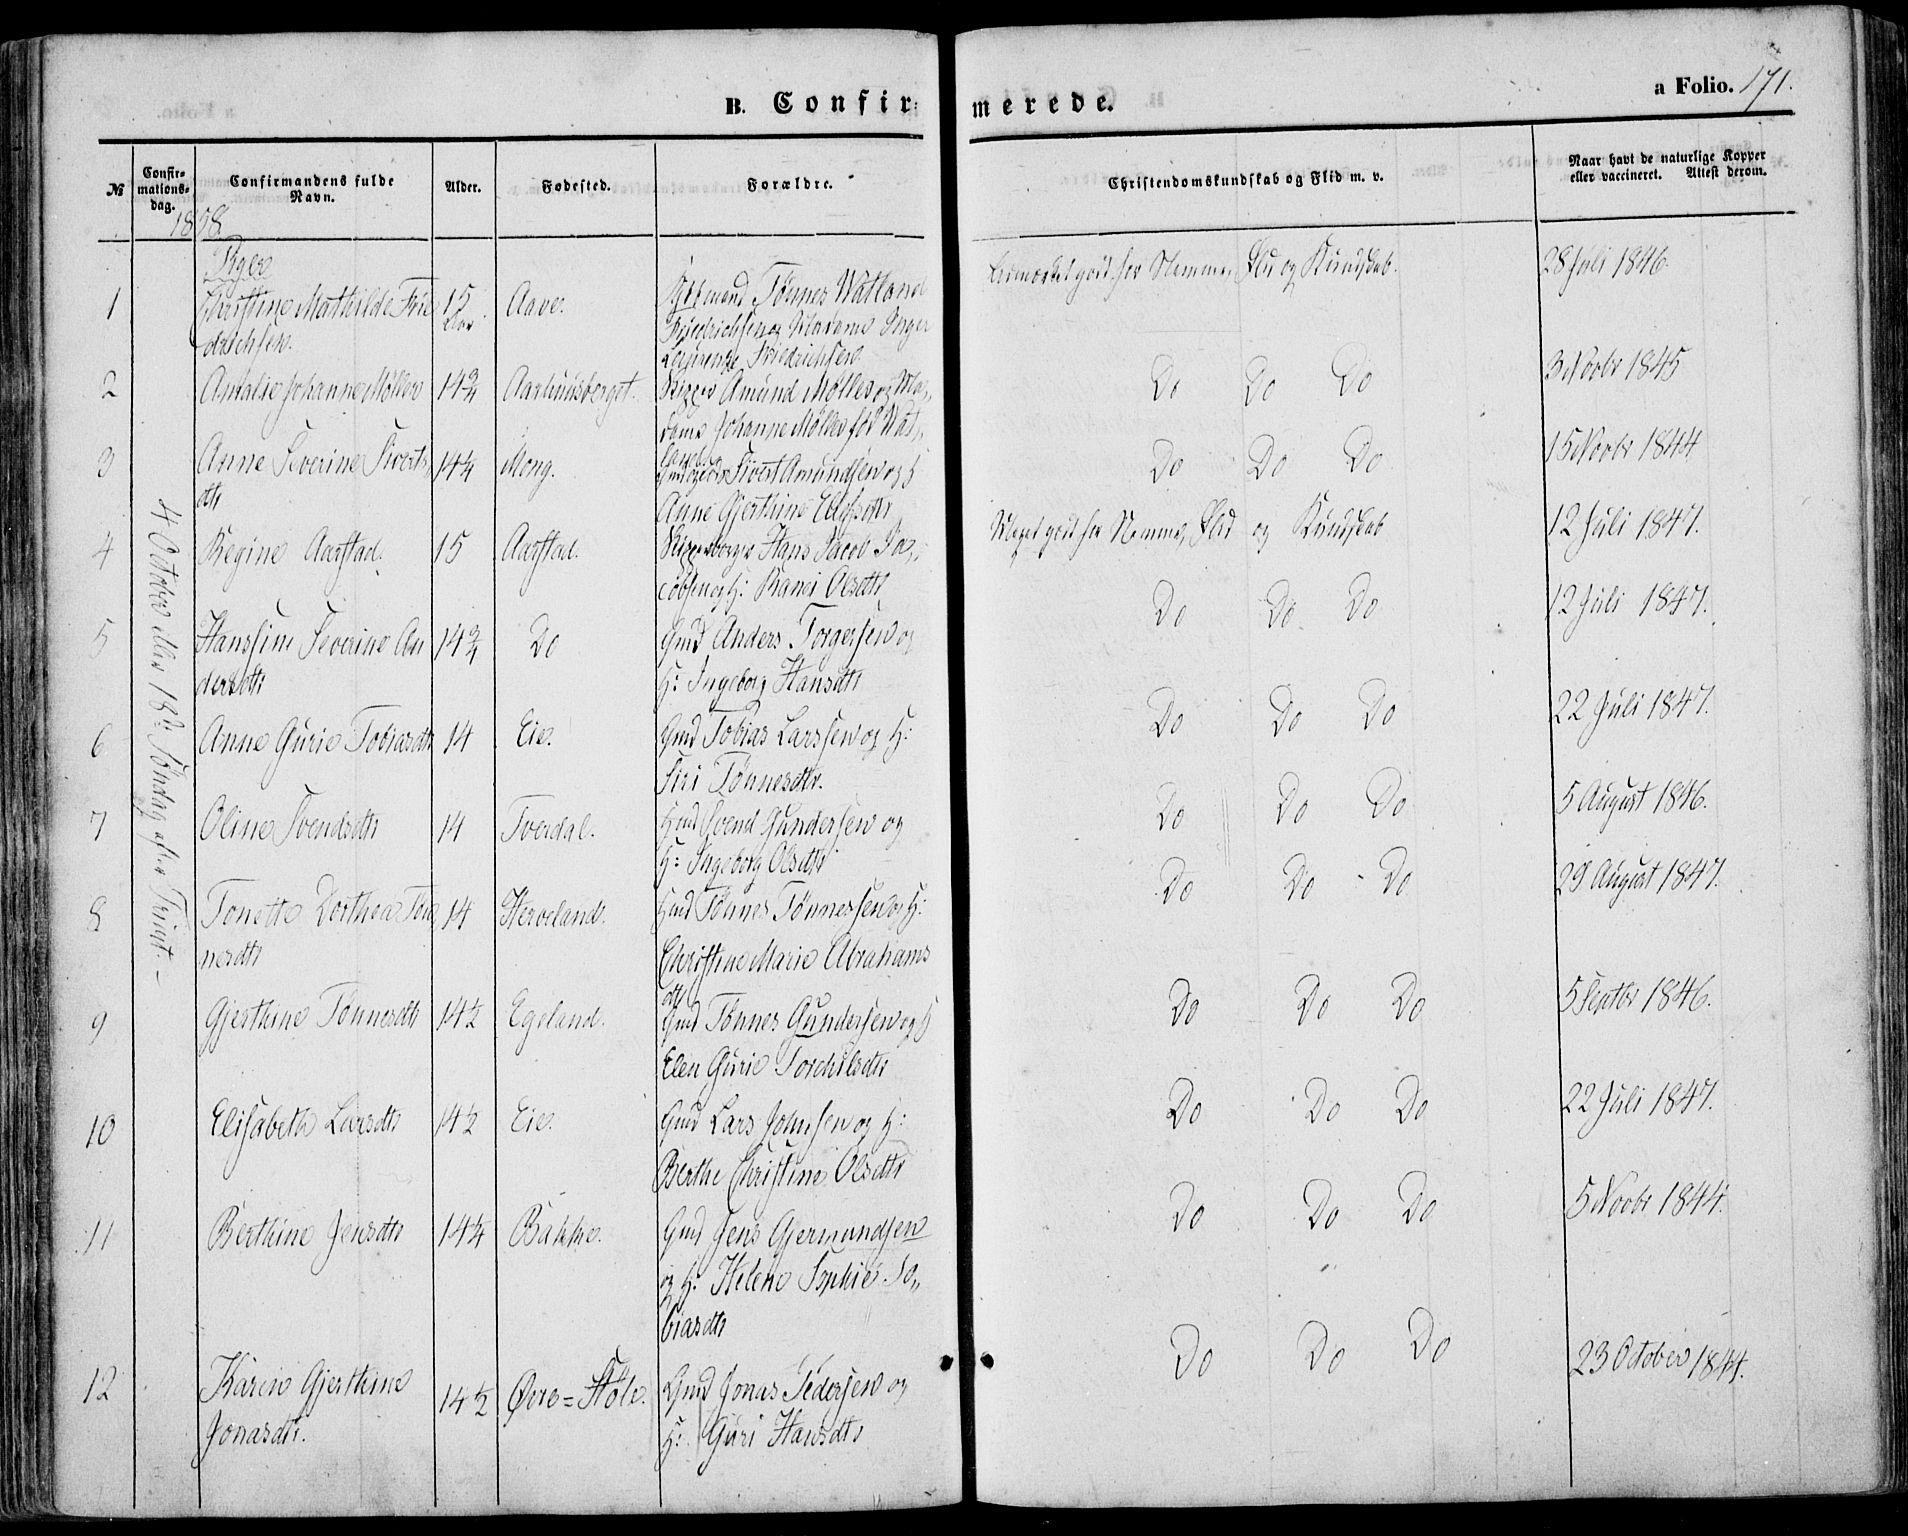 B. Confirmerede.
a Folio. 171.
№
Confirmations-dag.
Confirmandens fulde Navn.
Alder.
Fødested.
Forældre.
Christendomskundskab og Flid m. v.
Naar havt de naturlige Kopper eller vaccineret. Attest derom.
1858
Piger
4 October 18de Søndag after Trinit.
1 Christine Mathilde Frie 15 Aar Aave. Tønnes Watland 28 Juli 1846.
drichsen. Friedrichsen og Madame Inger
Friedrichsen
godt for Nemme, Flid og Kundskab.
2 Amalie Johanne Møller 14 3/4 Aarhuusberget. Skipper Amund Møller og Ma„ Do Do Do 3 Novbr 1845
dame Johanne Møller fød Wat„
3 Anne Severine Siverts 14 1/4 Mong. Sivert Amundsen og H Do Do Do 15 Novbr 1844
dtr Anne Gjerthine
4 Regine Aarstad. 15 Aarstad. Hans Jacob Ja„ Meget godt for Nemme, Flid og Kundskab 12 Juli 1847.
cobsen og H: Olsdtr
5 Hanssine Severine An 14 3/4 Do Gmd Anders Torgersen og Do Do Do 12 Juli 1847.
dersdtr H: Ingeborg Hansdtr
6 Anne Gurie Tobiasdtr 14 Eie. Gmd Tobias Larssen og H: Do Do Do 22 Juli 1847.
Siri Tønnesdtr.
7 Oline Svendsdtr 14 Tverdal. Hmd Svend Gundersen og Do Do Do 5 August 1846.
H: Ingeborg Olsdtr
8 Tonette Dorthea Tøn 14 Herveland. Hmd Tønnes Tønnessen og H: Do Do Do 29 August 1847.
nesdtr Christine Marie Abrahams
dtr
9 Gjerthine Tønnesdtr 14 1/2 Egeland. Gmd Tønnes Gundersen og H Do Do Do 5 Septbr 1846.
Elen Gurie Torchilsdtr
10 Elisabeth Larsdtr 14 1/2 Eie. Gmd Lars Johnsen og H: Do Do Do 22 Juli 1847.
Berthe Christine Olsdtr
11 Berthine Jensdtr 14 1/4 Bakke. Gmd Jens Gjermundsen Do Do Do 5 Novbr 1844.
og H: Helene Sophie To„
biasdtr
12 Karen Gjerthine 14 1/2 Øvre=Støle. Gmd Jonas Pedersen og Do Do Do 23 October 1844.
Jonasdtr. H: Guri Hansdtr